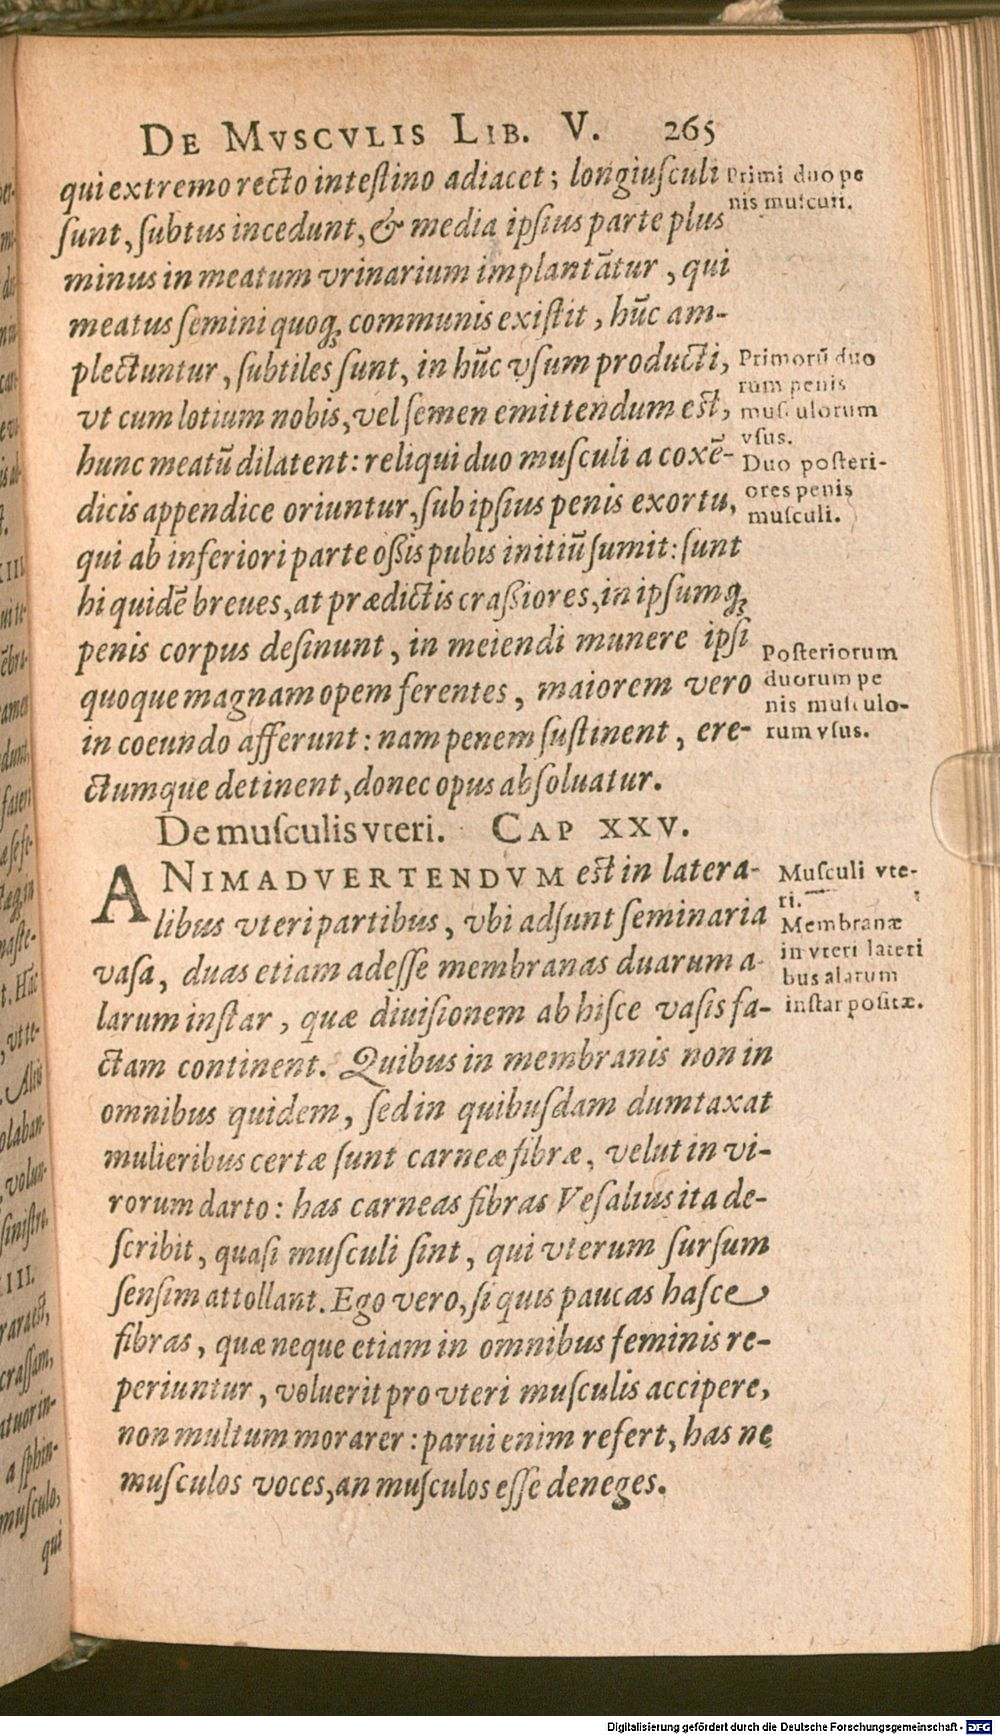 DE MVSCVLIS LIB. V. 265
qui extremo recto intestino adiacet; longiusculi
sunt, subtus incedunt, & media ipsius parte plus
minus in meatum vrinarium implantātur, qui
meatus semini quoq; communis existit, hūc am-
plectuntur, subtiles sunt, in hūc vsum producti,
vt cum lotium nobis, vel semen emittendum est,
hunc meatū dilatent: reliqui duo musculi a coxē-
dicis appendice oriuntur, sub ipsius penis exortu,
qui ab inferiori parte oßis pubis initiū sumit: sunt
hi quidē breues, at prædictis craßiores, in ipsumq;
penis corpus desinunt, in meiendi munere ipsi
quoque magnam opem ferentes, maiorem vero
in coeundo afferunt: nam penem sustinent, ere-
ctumque detinent, donec opus absoluatur.
Primi duo pe
nis musculi.
Primorū duo
rum penis
musculorum
vsus.
Duo posteri-
ores penis
musculi.
Posteriorum
duorum pe
nis musculo-
rum vsus.
De musculis vteri. CAP XXV.
ANIMADVERTENDVM est in latera-
libus vteri partibus, vbi adsunt seminaria
vasa, duas etiam adesse membranas duarum a-
larum instar, quæ diuisionem ab hisce vasis fa-
ctam continent. Quibus in membranis non in
omnibus quidem, sed in quibusdam dumtaxat
mulieribus certæ sunt carneæ fibræ, velut in vi-
rorum darto: has carneas fibras Vesalius ita de-
scribit, quasi musculi sint, qui vterum sursum
sensim attollant. Ego vero, si quis paucas hasce
fibras, quæ neque etiam in omnibus feminis re-
periuntur, voluerit pro vteri musculis accipere,
non multum morarer: parui enim refert, has ne
musculos voces, an musculos esse deneges.
Musculi vte-
ri.
Membranæ
in vteri lateri
bus alarum
instar positæ.
Digitalisierung gefördert durch die Deutsche Forschungsgemeinschaft - DFG